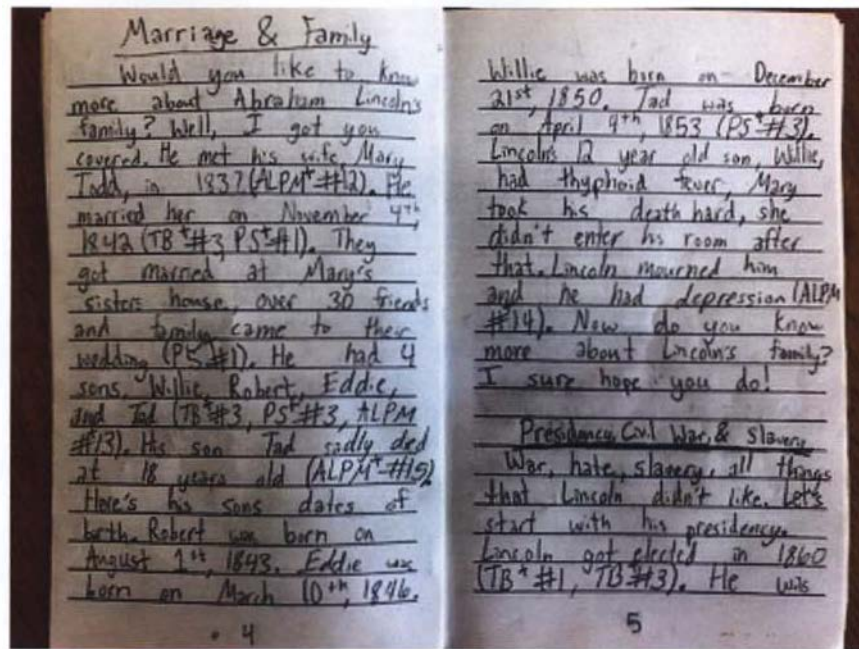 Marriage & Family
Would you like to know
more about Abraham Lincoln's
family? Well, I got you
covered. He met his wife, Mary
Todd, in 1837 (ALPM* #12). He
married her on November 4th,
1842 (TB* #3, PS* #1). They
got married at Mary's
sisters house, over 30 friends
and family came to their
wedding (PS #1). He had 4
sons, Willie, Robert, Eddie,
and Tad (TB* #3, PS* #3, ALPM
#13). His son Tad sadly died
at 18 years old (ALPM* #15).
Here's his sons dates of
birth. Robert was born on
August 1st, 1843. Eddie was
born on March 10th, 1846.
4
Willie was born on December
21st, 1850. Tad was born
on April 4th, 1853 (PS* #13).
Lincoln's 12 year old son, Willie,
had thyphoid fever, Mary
took his death hard, she
didn't enter his room after
that. Lincoln mourned him
and he had depression (ALPM
#14). Now do you know
more about Lincoln's family?
I sure hope you do!
Presidency, Civil War, & Slavery
War, hate, slavery, all things
that Lincoln didn't like. Let's
start with his presidency.
Lincoln got elected in 1860
(TB* #1, TB #3). He was
5